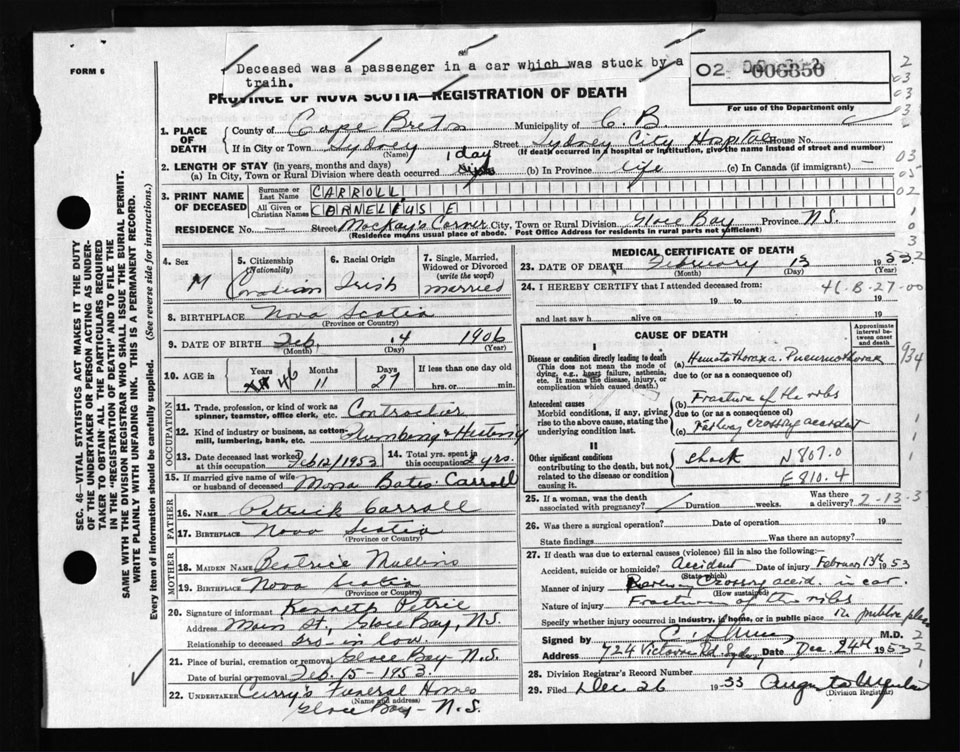 FORM 6
Deceased was a passenger in a car which was stuck by a
train.
02 006350
PROVINCE OF NOVA SCOTIA—REGISTRATION OF DEATH
For use of the Department only
1. PLACE OF DEATH
County of Cape Breton Municipality of C.B
If in City or Town Sydney (Name) Street Sydney City Hospital House No.
(If death occurred in a hospital or institution, give the name instead of street and number)
2. LENGTH OF STAY (in years, months and days)
(a) In City, Town or Rural Division where death occurred 1 day (b) In Province life (c) In Canada (if immigrant) —
3. PRINT NAME OF DECEASED
Surname or Last Name CARROLL
All Given or Christian Names CORNELIUS E
RESIDENCE No. — Street MacKay's Corner City, Town or Rural Division Glace Bay Province N.S.
(Residence means usual place of abode. Post Office Address for residents in rural parts not sufficient)
4. Sex M
5. Citizenship (Nationality) Canadian
6. Racial Origin Irish
7. Single, Married, Widowed or Divorced (write the word) married
8. BIRTHPLACE Nova Scotia
(Province or Country)
9. DATE OF BIRTH Feb 14 1906
(Month) (Day) (Year)
10. AGE in Years 46 Months 11 Days 27 If less than one day old
hrs. or min.
OCCUPATION
11. Trade, profession, or kind of work as spinner, teamster, office clerk, etc. Contractor
12. Kind of industry or business, as cotton-mill, lumbering, bank, etc. Plumbing & Heating
13. Date deceased last worked at this occupation Feb 12/1953
14. Total yrs. spent in this occupation 2 yrs.
15. If married give name of wife or husband of deceased Mona Bates Carroll
FATHER
16. NAME Patrick Carroll
17. BIRTHPLACE Nova Scotia
(Province or Country)
MOTHER
18. MAIDEN NAME Beatrice Mullins
19. BIRTHPLACE Nova Scotia
(Province or Country)
20. Signature of informant Kenneth Petrie
Address Main St, Glace Bay, N.S.
Bro-in law.
21. Place of burial, cremation or removal Glace Bay N.S.
Date of burial or removal Feb. 15-1953.
22. UNDERTAKER Curry's Funeral Home
(Name and address)
Glace Bay - N.S.
MEDICAL CERTIFICATE OF DEATH
23. DATE OF DEATH February 13 1953
(Month) (Day) (Year)
24. I HEREBY CERTIFY that I attended deceased from:
46-8-27-00
19 to 19
and last saw h alive on 19
CAUSE OF DEATH
Approximate interval between onset and death
I
Disease or condition directly leading to death
(This does not mean the mode of dying, e.g., heart failure, asthenia, etc. It means the disease, injury, or complication which caused death.)
(a) Hemothorax a. Pneumothorax
due to (or as a consequence of)
934
Antecedent causes
Morbid conditions, if any, giving rise to the above cause, stating the underlying condition last.
(b) Fracture of the ribs
due to (or as a consequence of)
(c) Railway crossing accident
II
Other significant conditions
contributing to the death, but not related to the disease or condition causing it
Shock N 867.0
E 810.4
25. If a woman, was the death associated with pregnancy? Duration weeks. Was there a delivery?
2-13-3
26. Was there a surgical operation? Date of operation 19
State findings Was there an autopsy?
27. If death was due to external causes (violence) fill in also the following:
Accident, suicide or homicide? Accident Date of injury February 13th 1953
(State which)
Manner of injury Railway Crossing accid. in car.
(How sustained)
Nature of injury Fracture of the ribs
Specify whether injury occurred in industry, in home, or in public place In public place
Signed by M.D.
Address 724 Victoria Rd Sydney Date Dec 24th 1953
28. Division Registrar's Record Number
29. Filed Dec 26 1953
(Division Registrar)
SEC. 46—VITAL STATISTICS ACT MAKES IT THE DUTY
OF THE UNDERTAKER OR PERSON ACTING AS UNDER-
TAKER TO OBTAIN ALL THE PARTICULARS REQUIRED
IN THE "REGISTRATION OF DEATH" AND TO FILE THE
SAME WITH THE DIVISION REGISTRAR WHO SHALL ISSUE THE BURIAL PERMIT.
WRITE PLAINLY WITH UNFADING INK. THIS IS A PERMANENT RECORD.
Every item of information should be carefully supplied. (See reverse side for instructions.)